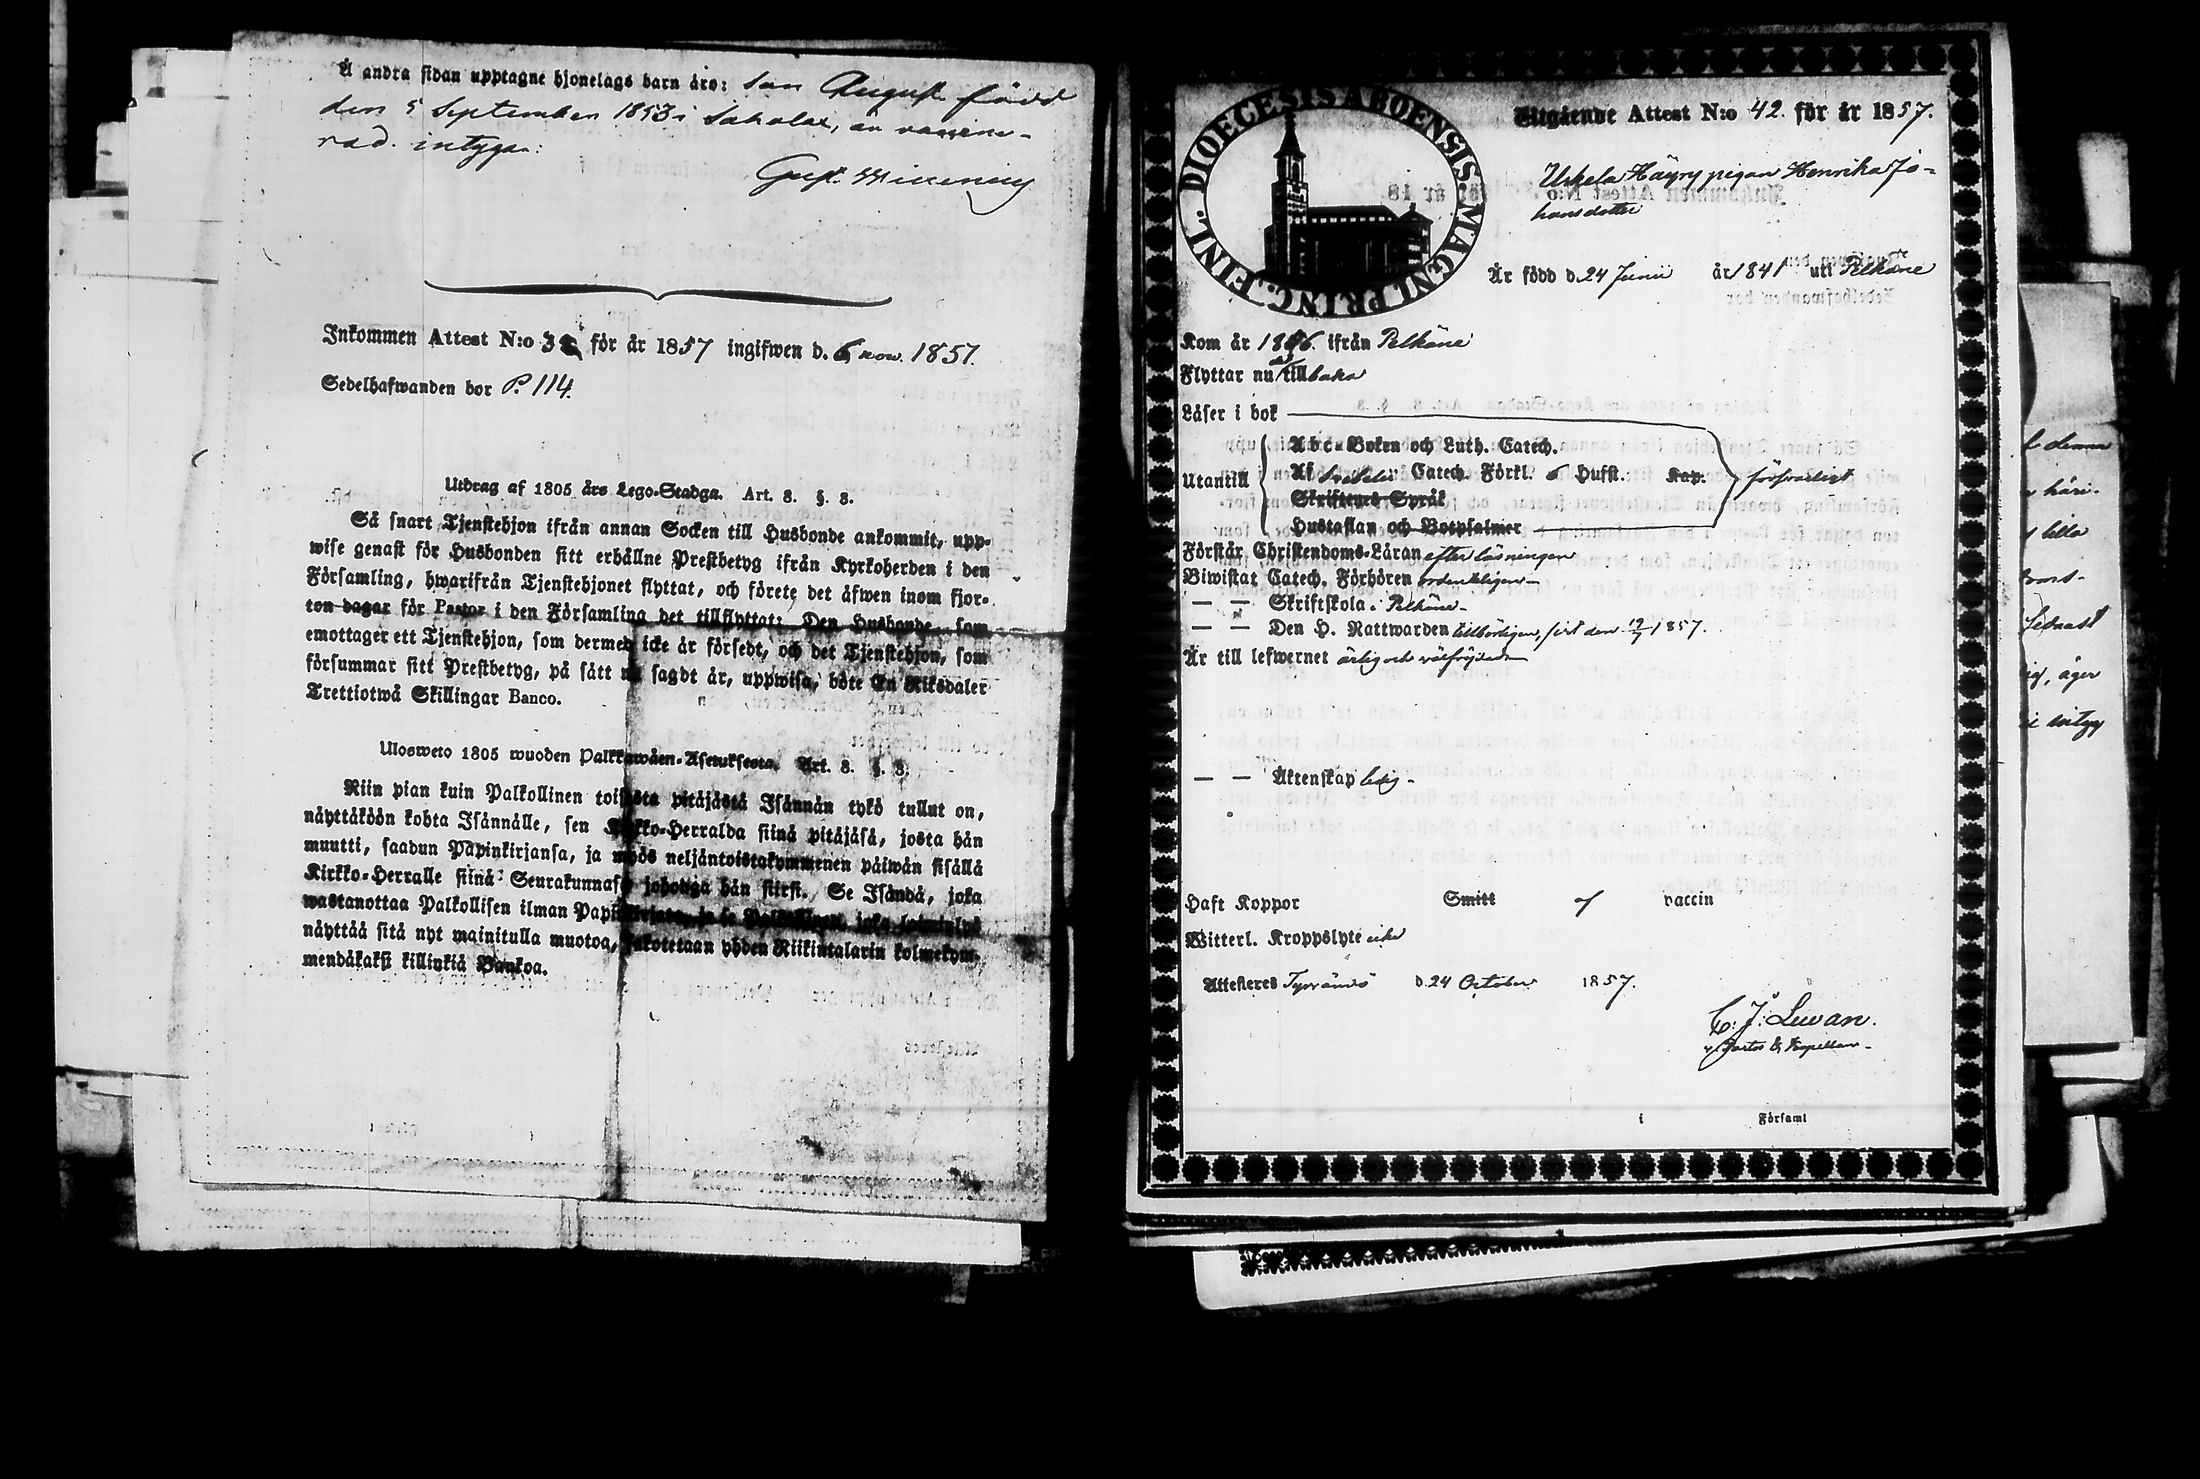 Å andra sidan upptagne hjonelags barn äro: son August född
den 5 September 1853 i Sahalax, är vaccine-
rad. intygar:
Gust.
Inkommen Attest N:o 32 för år 1857 ingifwen d. 6 nov. 1857.
Sedelhafwanden bor P. 114.
Utdrag af 1805 års Lego-Stadga. Art. 8. §. 8.
Så snart Tjenstehjon ifrån annan Socken till Husbonde ankommit, upp-
wise genast för Husbonden sitt erhållne Prestbetyg ifrån Kyrkoherden i den
Församling, hwarifrån Tjenstehjonet flyttat, och förete det äfwen inom fjor-
ton dagar för Pastor i den Församling det tillflyttat; Den Husbonde, som
emottager ett Tjenstehjon, som dermed icke är försedt, och det Tjenstehjon, som
försummar sitt Prestbetyg, på sätt nu sagdt är, uppwisa, böte En Riksdaler
Trettiotwå Skillingar Banco.
Ulosweto 1805 wuoden Palkkawäen-Asetuksesta. Art. 8. §. 8.
Niin pian kuin Palkollinen toisesta pitäjästä Isännän tykö tullut on,
näyttäköön kohta Isännälle, sen Kirkko-Herralda siinä pitäjäsä, josta hän
muutti, saadun Papinkirjansa, ja myös neljäntoistakymmenen päiwän sisällä
Kirkko-Herralle siinä Seurakunnasa johonga hän siirsi. Se Isändä, joka
wastanottaa Palkollisen ilman Papinkirjata, ja se Palkollinen joka laiminlyö
näyttää sitä nyt mainitulla muotoa, sakotetaan yhden Riikintalarin kolmekym-
mendäkaksi killinkiä Bankoa.
DIOECESIS ABOENSIS MAGNI PRINC. FINL.
Utgående Attest N:o 42. för år 1857.
Uskela Häyry pigan Henrika Jo-
hansdotter
Är född d. 24 Junii år 1841 uti Pelkäne
Kom år 1856. ifrån Pelkäne
Flyttar nu dit tillbaka
Läser i bok
Abc-Boken och Luth. Catech.
Utantill Af Svebelii Catech. Förkl. 6 Hufst. Kap. försvarligt
Skriftenes Språk
Hustaflan och Botpsalmer
Förstår Christendoms-Läran efter läsningen
Biwistat Catech. Förhören ordentligen
— — Skriftskola i Pelkäne
— — Den H. Nattwarden tillbörligen, sist den 19/7 1857.
Är till lefwernet ärlig och välfrejdad
— — Äktenskap ledig
Haft Koppor Smitt vaccin
Witterl. Kroppslyte
Attesteres Tyrväntö d. 24 October 1857.
C. J. Lewan.
v. Pastor & Kapellan
i Församl
denna
häri-
lilla
äger
intyg